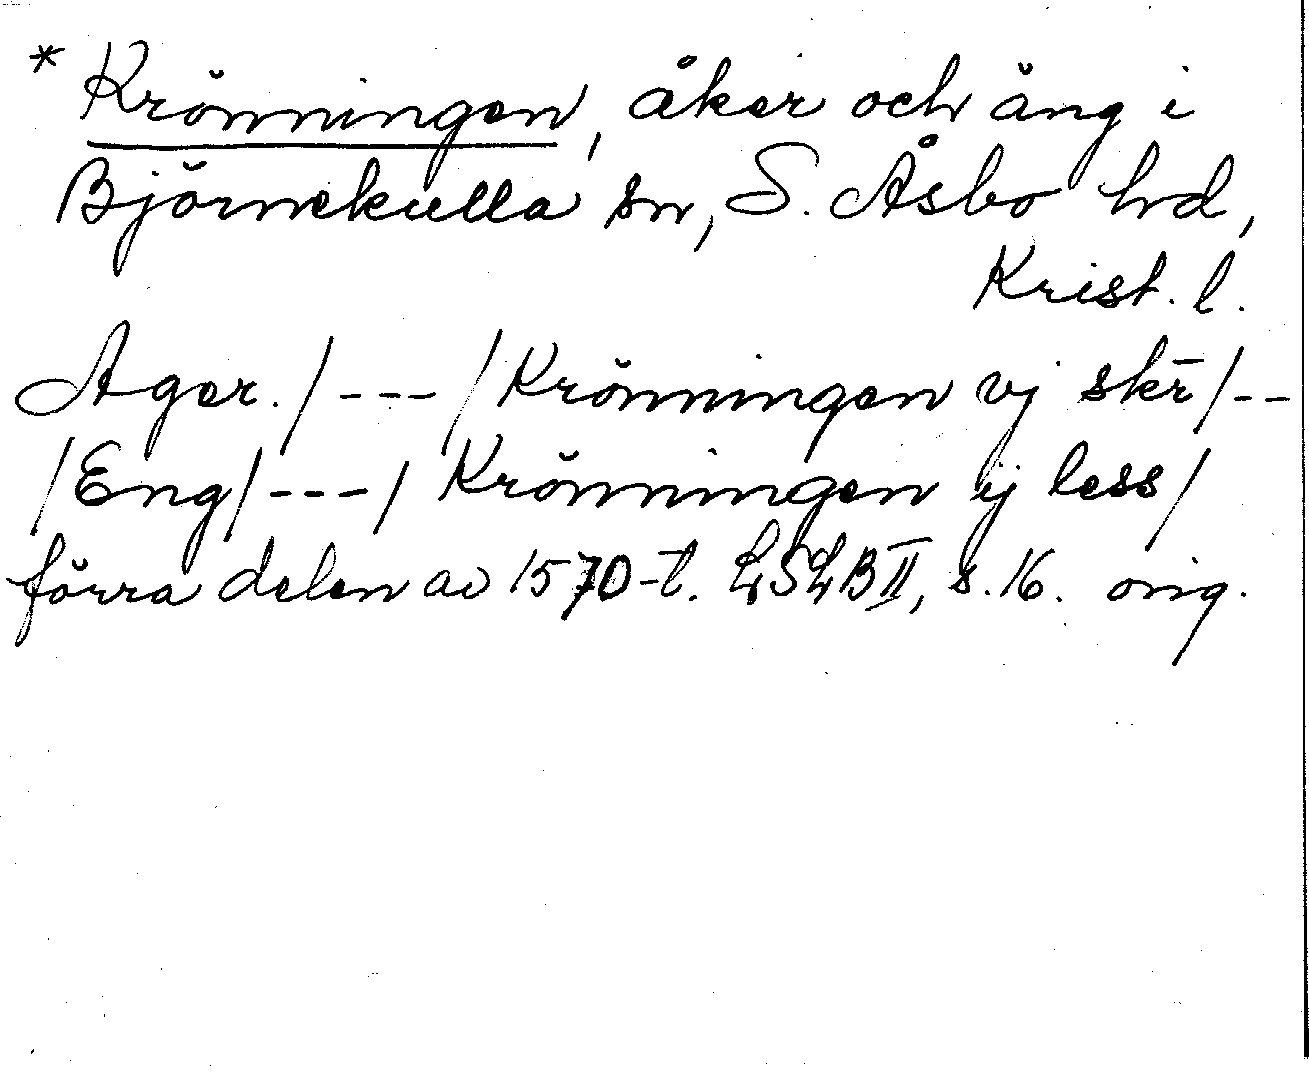 * Krönningen, åker och äng i
Björnekulla sn, S. Åsbo hd,
Krist. l.
Ager. /---/ Krönningen vj skr̄ /--
/Eng/---/ Krönningen ij less/
förra delen av 1570-t. LSLB II, s. 16. orig.